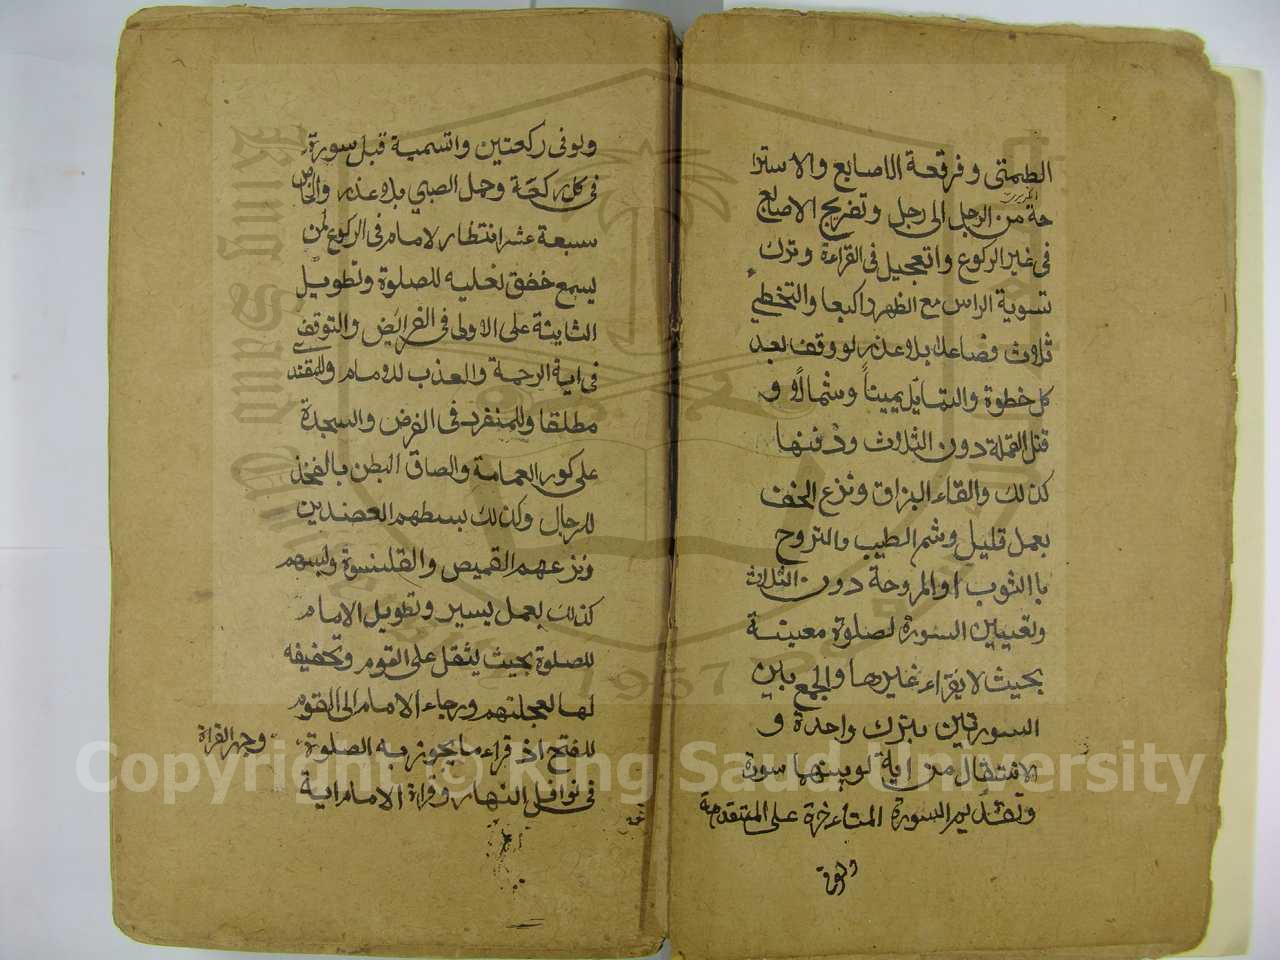 الطمتى وفرقعة الاصابع والاسترا
حة من الرجل الى رجل وتفريج الاصابع
فى غير الركوع والتعجيل فى القراءة وترك
تسوية الراس مع الظهر راكعا والتخطي
ثلاث فصاعدا بلا عذر لو وقف بعد
كل خطوة والتمايل يميناً وشمالاً و
قتل القملة دون الثلاث ودفنها
كذلك والقاء البزاق ونزع الخف
بعمل قليل وشم الطيب والتروح
باالثوب او المروحة دون الثلاث
وتعيين السورة لصلوة معينة
بحيث لا يقراء غيرها والجمع بين
السورتين بترك واحدة و
الانتقال من اية لو بينها سورة
وتقديم السورة المتاءخرة على المتقدمة
ولوفى ركعتين والتسمية قبل سورة
فى كل ركعة وحمل الصبي بلا عذر
سبعة عشر انتظار الامام فى الركوع لمن
يسمع خفق نعليه للصلوة وتطويل
الثانية على الاولى فى الفرائض والتوقف
فى اية الرحمة والعذب للامام وللمقتدے
مطلقا وللمنفرد فى الفرض والسجدة
على كور العمامة والصاق البطن بالفخذ
للرجال وكذلك بسطهم العضدين
ونزعهم القميص والقلنسوة ولبسهم
كذلك بعمل يسير وتطويل الامام
للصلوة بحيث يثقل على القوم وتخفيفه
لها لعجلتهم ورجاء الامام الى القوم
للفتح اذ قراء ما يجوز به الصلوة
وجهر القراة
فى نوافل النهار وقراة الامام اية
Copyright © King Saud University
1957